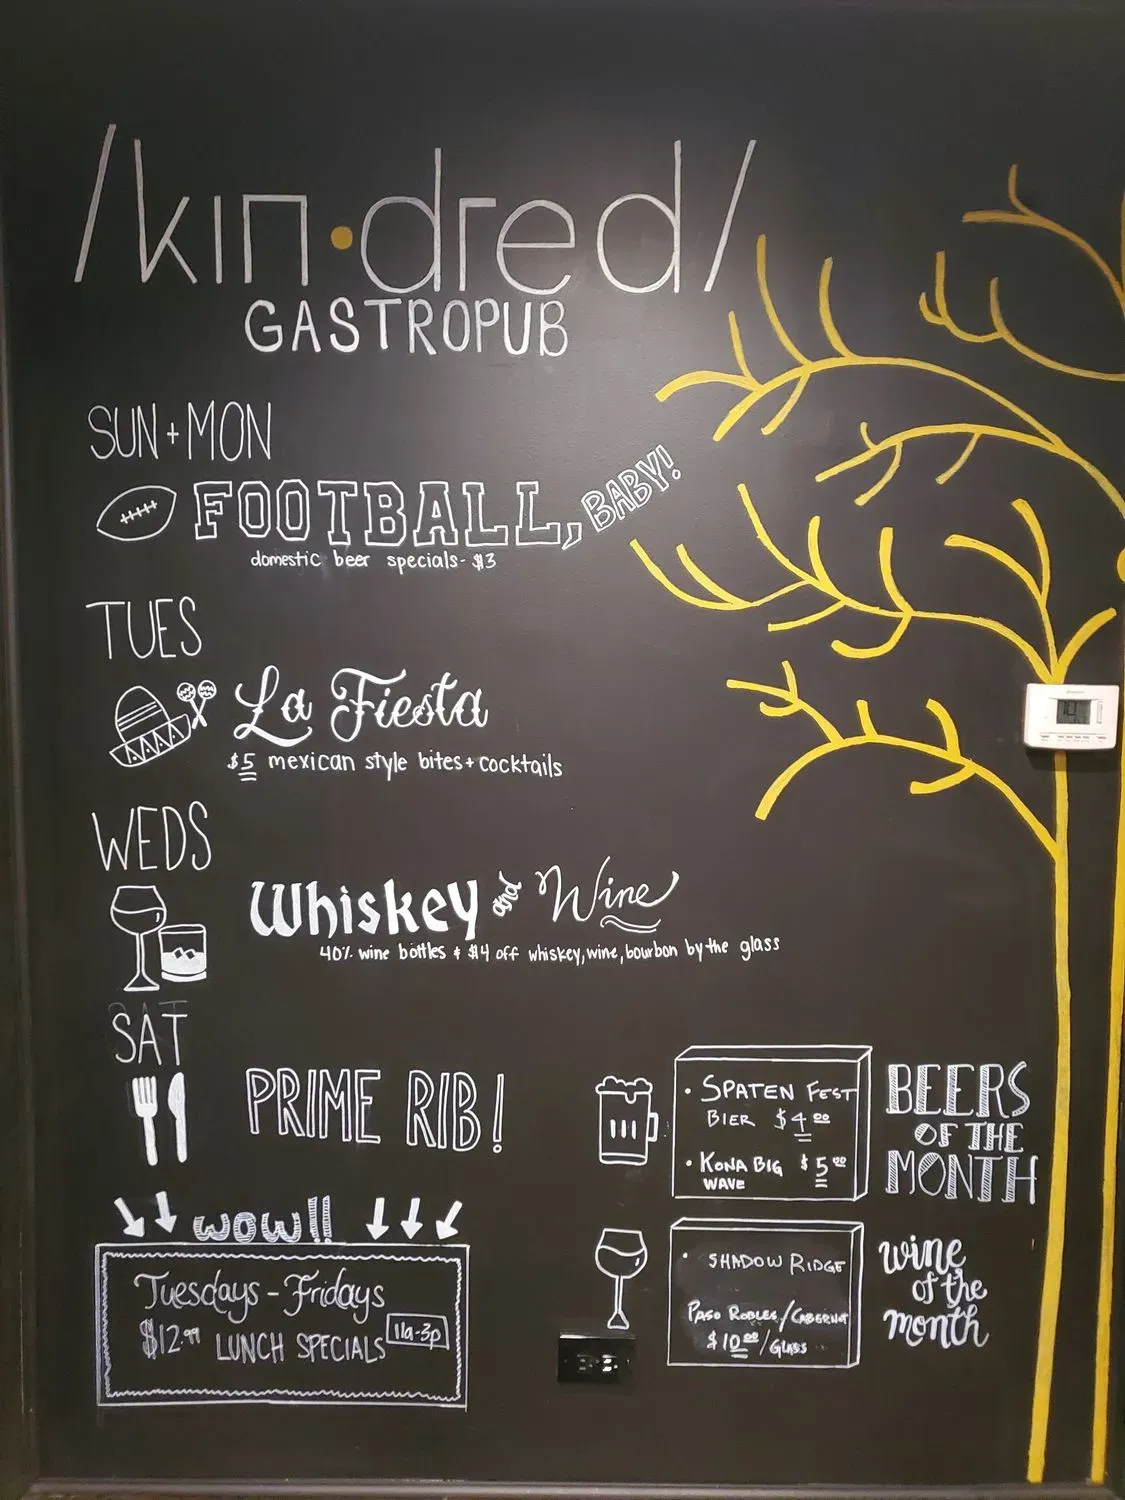 /kin·dred/
GASTROPUB
SUN+MON
FOOTBALL, BABY!
domestic beer specials- $3
TUES
La Fiesta
$5 mexican style bites + cocktails
WEDS
Whiskey and Wine
40% wine bottles + $4 off whiskey, wine, bourbon by the glass
SAT
PRIME RIB!
• SPATEN FEST
BIER $4.00
• KONA BIG $5.00
WAVE
BEERS
OF THE
MONTH
WOW!!
Tuesdays - Fridays
$12.99 LUNCH SPECIALS 11a-3p
• SHADOW RIDGE
PASO ROBLES/CABERNET
$10.00/GLASS
wine
of the
month